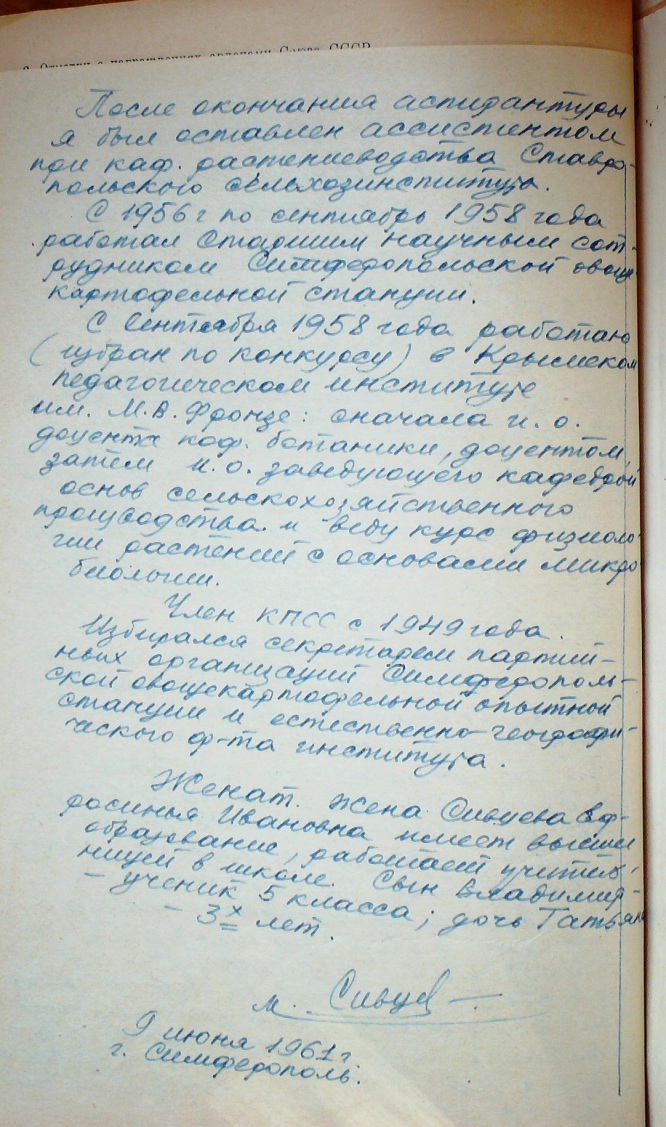 2. Отметки о награждениях орденами Союза СССР
После окончания аспирантуры
я был оставлен ассистентом
при каф. растениеводства Ставро-
польского сельхозинститута.
С 1956 г по сентябрь 1958 года
работал старшим научным сот-
рудником Симферопольской овоще-
картофельной станции.
С сентября 1958 года работаю
(избран по конкурсу) в Крымском
педагогическом институте
им. М.В. Фрунзе: сначала и. о.
доцента каф. ботаники, доцентом,
затем и.о. заведующего кафедрой
основ сельскохозяйственного
производства. и веду курс физиоло-
гии растений с основами микро-
биологии.
Член КПСС с 1949 года.
Избирался секретарем партий-
ных организаций Симферополь-
ской овощекартофельной опытной
станции и естественно-географи-
ческого ф-та института.
Женат. Жена Сивцева Еф-
росинья Ивановна имеет высшее
образование, работает учитель-
ницей в школе. Сын Владимир-
- ученик 5 класса; дочь Татьяна
- 3х лет.
М. Сивцев
9 июня 1961 г
г. Симферополь.